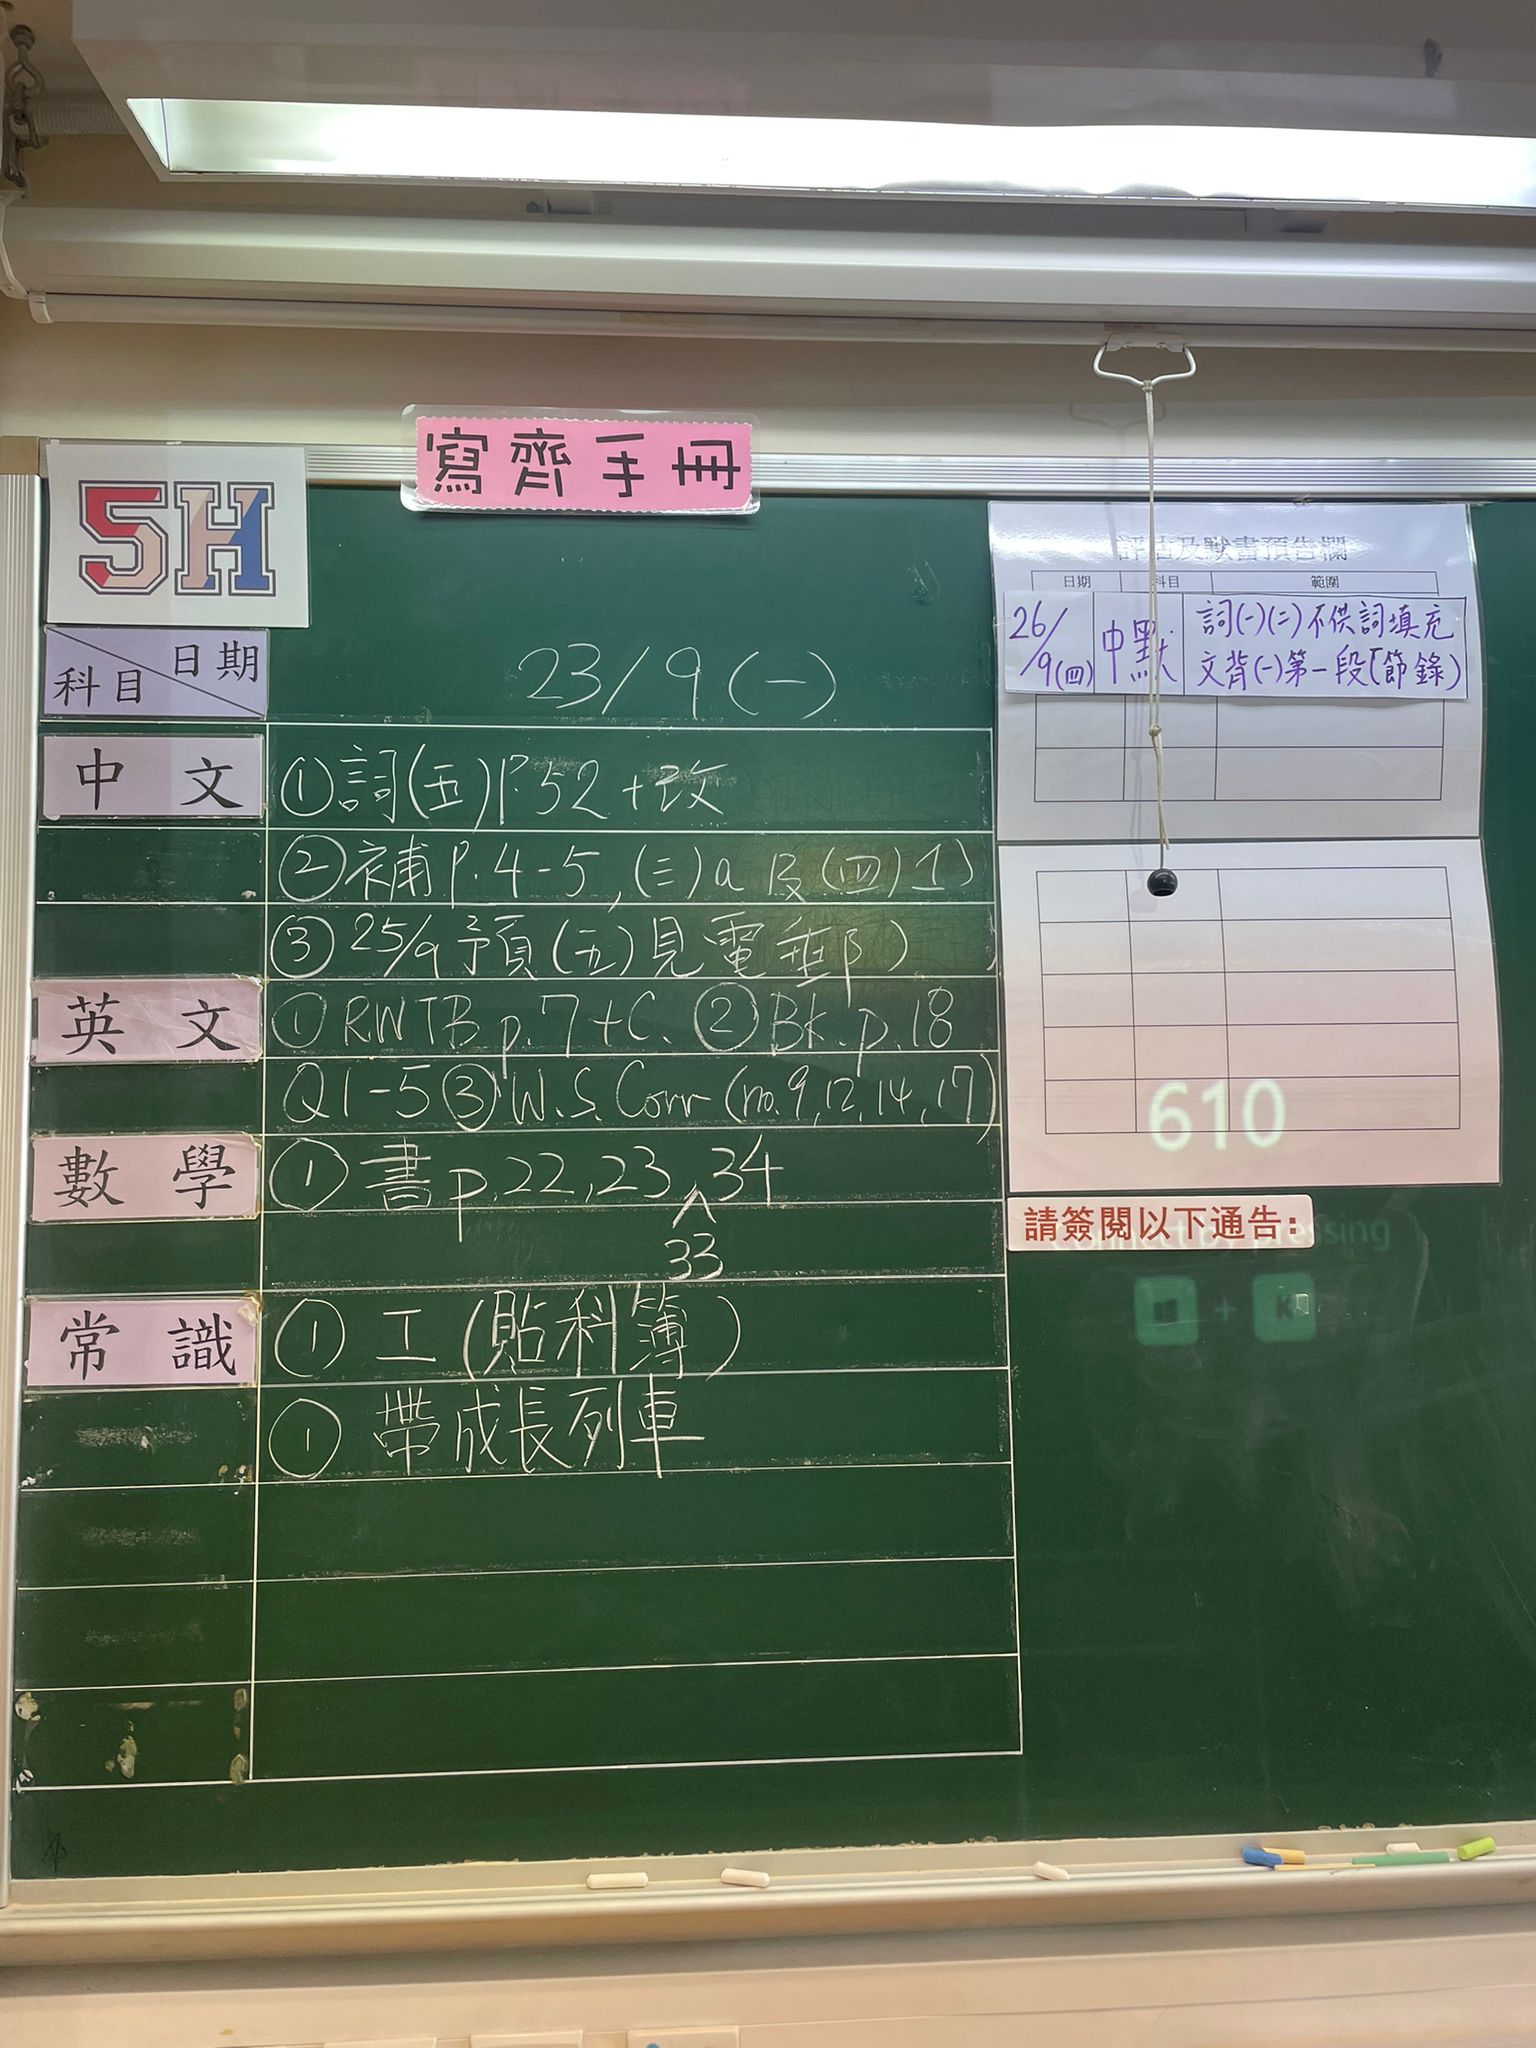 寫齊手冊
5H
日期
科目
23/9(一)
中文
①詞(五)P.52+改
②補P.4-5,(三)a及(四)1)
③25/9預(五)見電郵)
英文
①RWTB p.7+C. ②Bk.p.18
Q1-5③W.S. Corr (no.9,12,14,17)
數學
①書p.22,23,34
33
常識
①工(貼科簿)
①帶成長列車
評估及默書預告欄
日期 科目 範圍
26/9(四) 中默 詞(一)(二)不供詞填充
文背(一)第一段「節錄)
610
請簽閱以下通告:
pressing
+ K